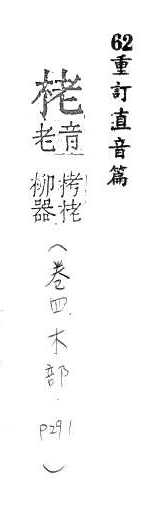 62重訂直音篇
栳音老栲栳柳器（巻四.木部.P291）